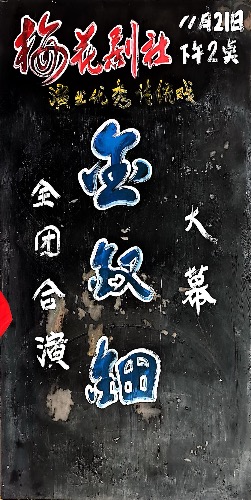 梅花剧社
11月21日
下午2点
演出优秀传统戏
金钗钿
大幕
全团合演